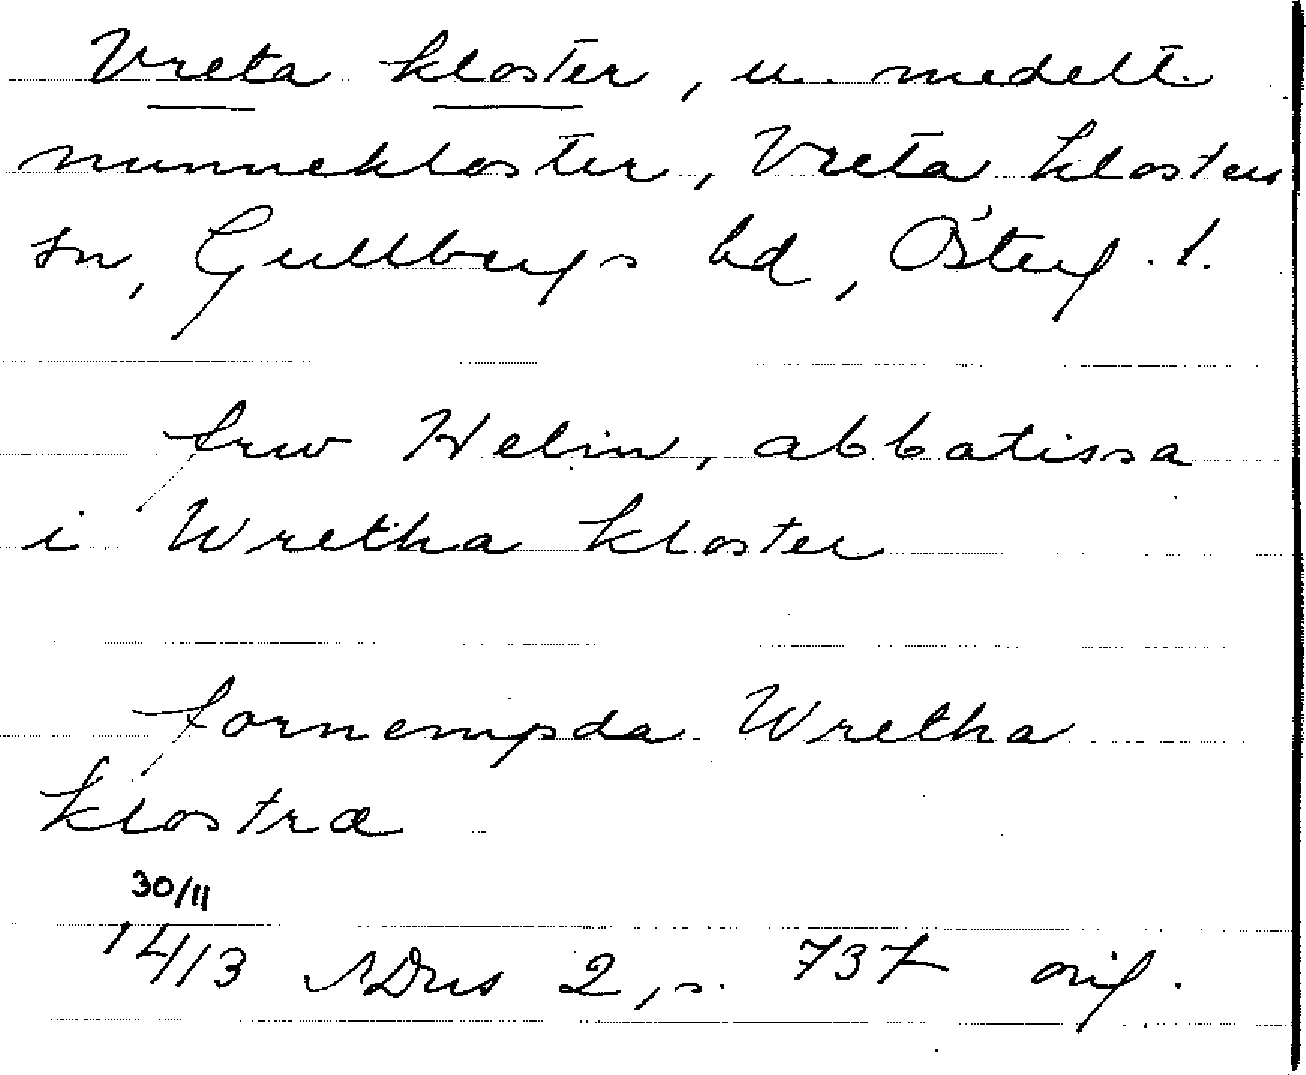 Vreta kloster, u. medelt.
nunnekloster, Vreta klosters
sn, Gullbergs hd, Österg. l.
frw Helin, abbatissa
i Wretha kloster
fornempda Wretha
klostra
30/11
1413 SDns 2, s. 737 orig.